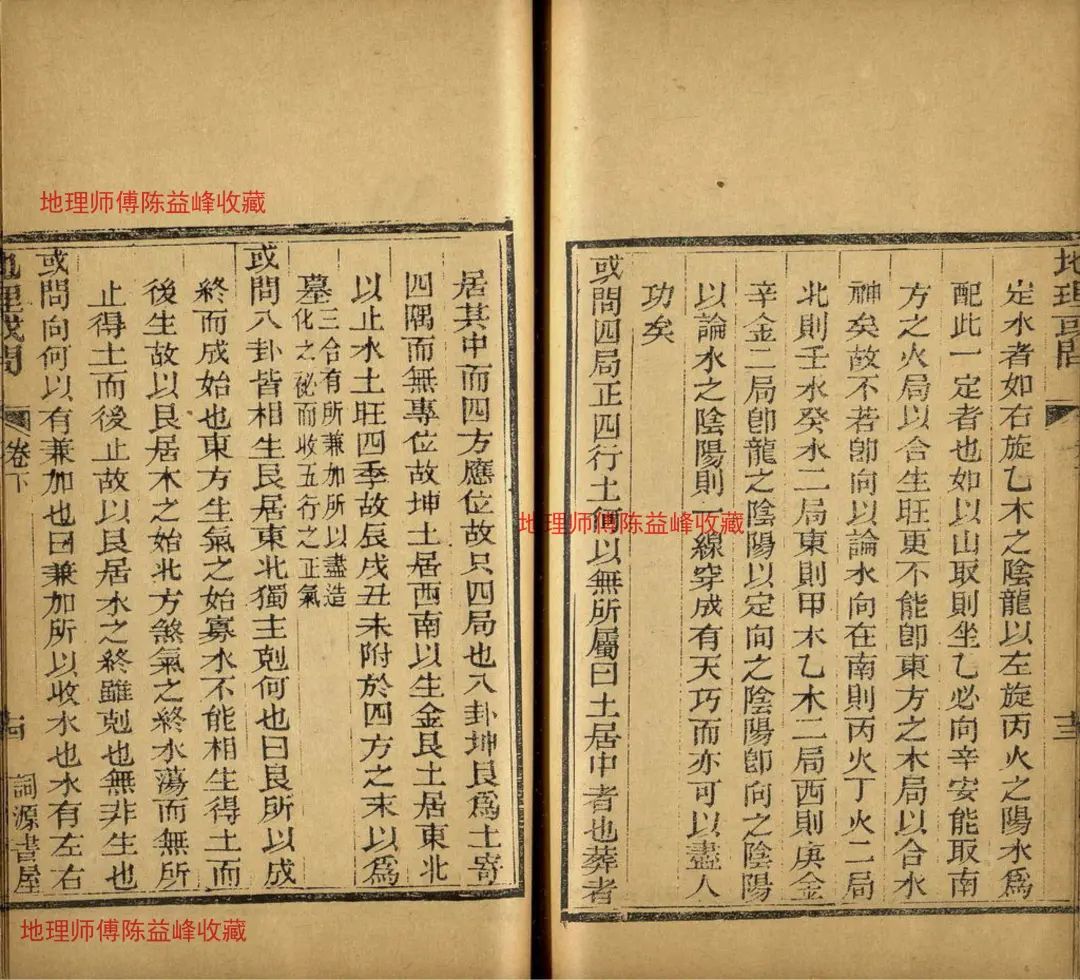 地理或問
十三
定水者如右旋乙木之陰龍以左旋丙火之陽水為
配此一定者也如以山取則坐乙必向辛安能取南
方之火局以合生旺更不能卽東方之木局以合水
神矣故不若卽向以論水向在南則丙火丁火二局
北則壬水癸水二局東則甲木乙木二局西則庚金
辛金二局卽龍之陰陽以定向之陰陽卽向之陰陽
以論水之陰陽則一線穿成有天巧而亦可以盡人
功矣
或問四局正四行土何以無所屬曰土居中者也葬者
居其中而四方應位故只四局也八卦坤艮爲土寄
四隅而無專位故坤土居西南以生金艮土居東北
以止水土旺四季故辰戌丑未附於四方之末以爲
墓三合有所兼加所以盡造
化之祕而收五行之正氣
或問八卦皆相生艮居東北獨主剋何也曰艮所以成
終而成始也東方生氣之始寡水不能相生得土而
後生故以艮居木之始北方煞氣之終水蕩而無所
止得土而後止故以艮居水之終雖剋也無非生也
或問向何以有兼加也曰兼加所以收水也水有左右
地理或問
卷下
十四
詞源書屋
地理师傅陈益峰收藏
地理师傅陈益峰收藏
地理师傅陈益峰收藏